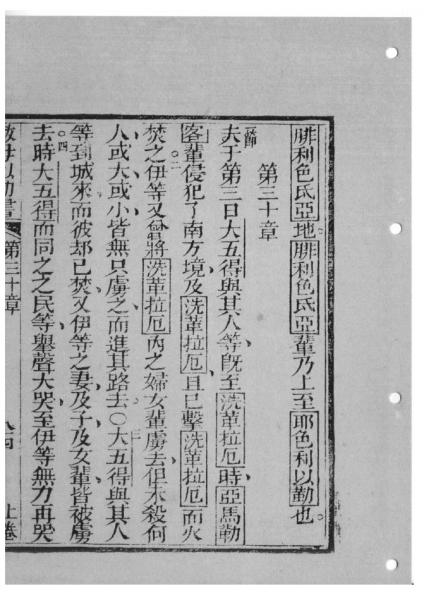 腓利色氏亞地。腓利色氏亞輩乃上至耶色利以勒也。
第三十章
節夫于第三日大五得與其人等既至洗革拉厄時亞馬勒
客輩。二侵犯了南方境及洗革拉厄、且已擊洗革拉厄而火
焚之伊等又曾將洗革拉厄內之婦女輩虜去但未殺何
人或大或小皆無只虜之而進其路去○三大五得與其人
等到城來而彼却已焚又伊等之妻及子及女輩皆被虜
。四去時大五得而同之之民等舉聲大哭至伊等無力再哭
第三十章 上卷